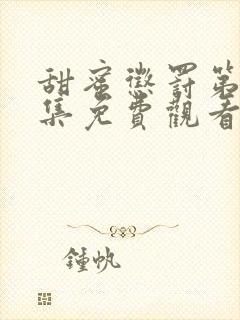 甜蜜懲罰第
集免費觀看
鍾帆